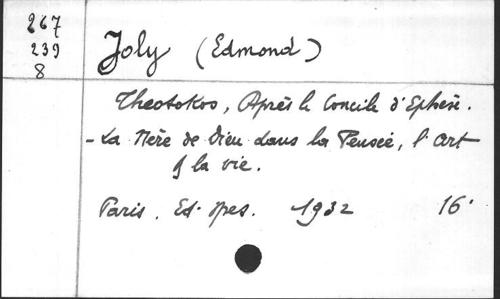 267
239
8
Joly (Edmond)
Theotokos, Après le Concile d'Ephèse.
- La Mère de Dieu dans la Pensée, l'art
& la vie.
Paris. Ed. Spes. 1932 16°